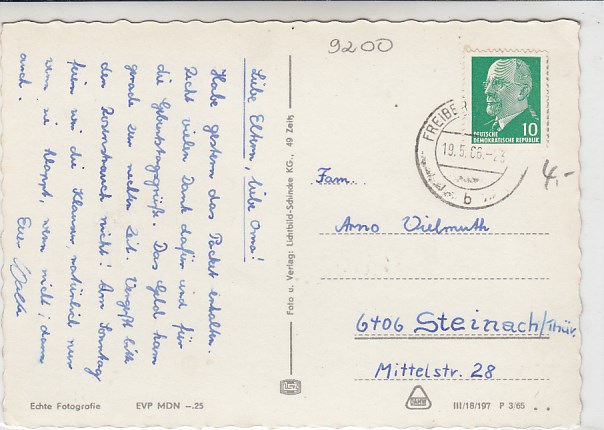 9200
Liebe Eltern, liebe Oma!
Habe gestern das Packet erhalten.
Recht vielen Dank dafür und für
die Geburtstagsgrüße. Das Geld kam
gerade zur rechten Zeit. Vergeßt bitte
den Rosenstrauch nicht! Am Sonntag
feiern wir die Klausur, natürlich nur
wenn sie klappt, wenn nicht, dann
auch.
Euer
Foto u. Verlag: Lichtbild-Schincke KG., 49 Zeitz
10
DEUTSCHE
DEMOKRATISCHE REPUBLIK
FREIBER
19.5.66.-23
b
4,-
Fam.
Arno Vielmuth
6406 Steinach/Thür.
Mittelstr. 28
Echte Fotografie EVP MDN –.25
III/18/197 P 3/65